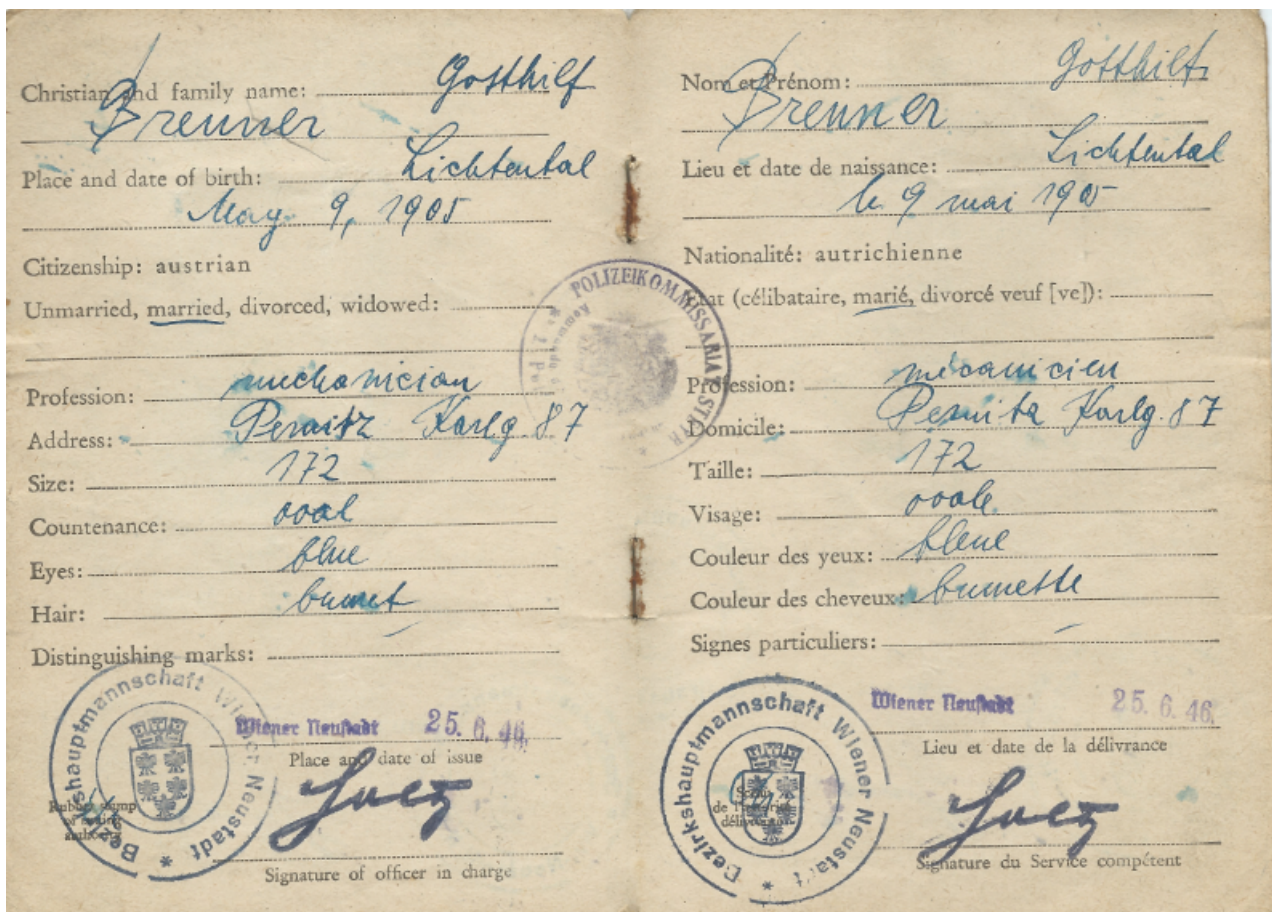 Christian and family name: Gotthilf
Brenner
Place and date of birth: Lichtental
May 9, 1905
Citizenship: austrian
Unmarried, married, divorced, widowed:
Profession: mechanician
Address: Pernitz Karlg. 87
Size: 172
Countenance: oval
Eyes: blue
Hair: brunet
Distinguishing marks: –
Bezirkshauptmannschaft Wiener Neustadt *
Rubber stamp
of issuing
authority
Wiener Neustadt 25. 6. 46.
Place and date of issue
Signature of officer in charge
POLIZEIKOMMISSARIAT STEYR *
Nom et Prénom: Gotthilf
Brenner
Lieu et date de naissance: Lichtental
le 9 mai 1905
Nationalité: autrichienne
Etat (célibataire, marié, divorcé veuf [ve]):
Profession: mécanicien
Domicile: Pernitz Karlg. 87
Taille: 172
Visage: ovale
Couleur des yeux: bleue
Couleur des cheveux: brunette
Signes particuliers: –
Bezirkshauptmannschaft Wiener Neustadt *
de l'autorité
Wiener Neustadt 25. 6. 46.
Lieu et date de la délivrance
Signature du Service compétent